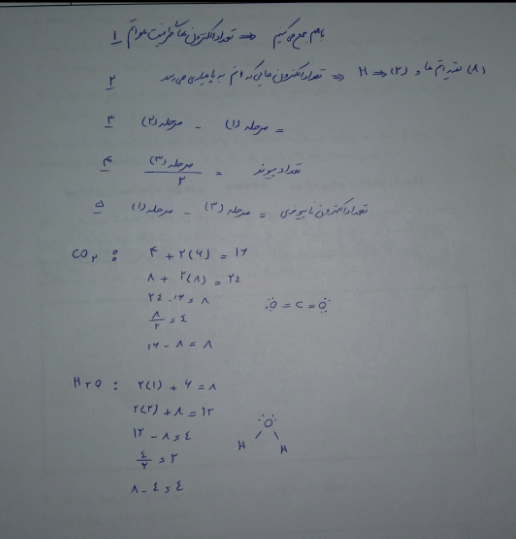 ۱ تعداد الکترون های ظرفیت عوامل ⇐ باهم جمع می کنیم
۲ تعداد الکترون هایی که اتم به پایداری می رسد ⇐ H ⇒ (۲) و بقیه اتم ها (۸)
۳ مرحله (۲) - مرحله (۱) =
۴ مرحله (۳) / ۲ = تعداد پیوند
۵ مرحله (۱) - مرحله (۳) = تعداد الکترون ناپیوندی
CO۲ : ۴ + ۲(۶) = ۱۶
۸ + ۲(۸) = ۲٤
۲٤ - ۱۶ = ۸
۸/۲ = ٤
۱۶ - ۸ = ۸
O = C = O
H۲O : ۲(۱) + ۶ = ۸
۲(۲) + ۸ = ۱۲
۱۲ - ۸ = ٤
٤/۲ = ۲
۸ - ٤ = ٤
O
H H